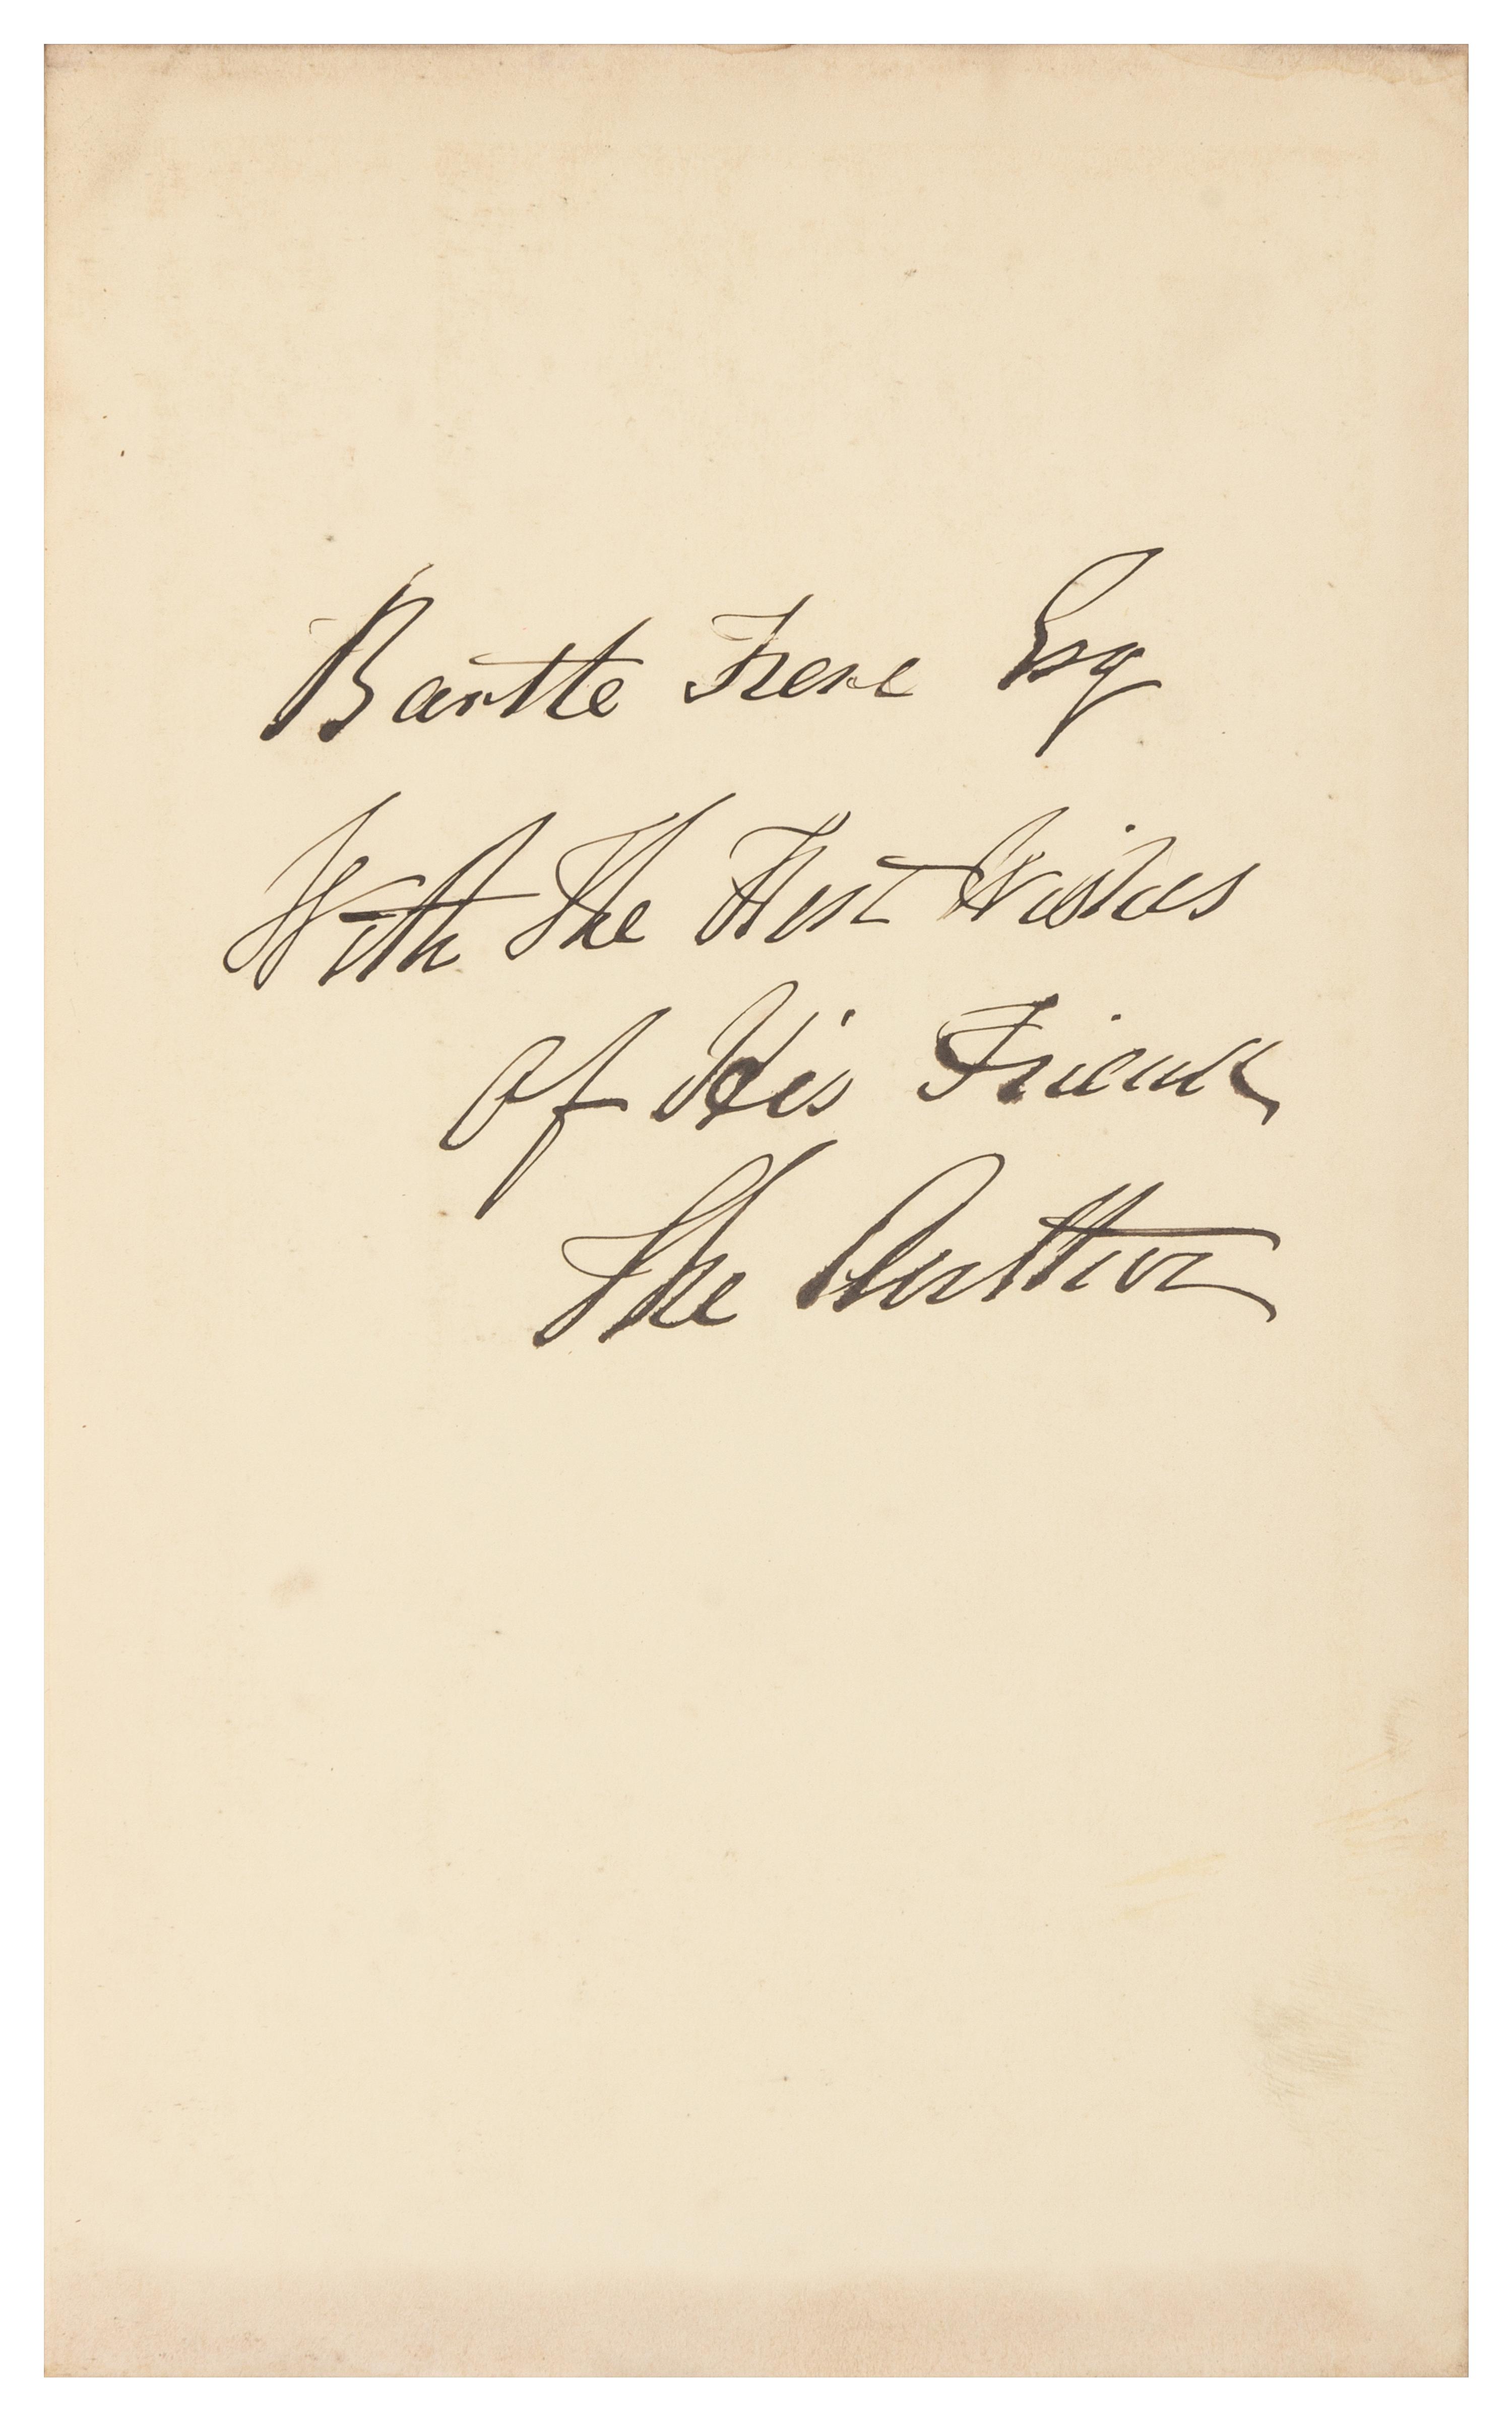 Bartte Frere Esq
With The Best Wishes
Of His Friend
The Author